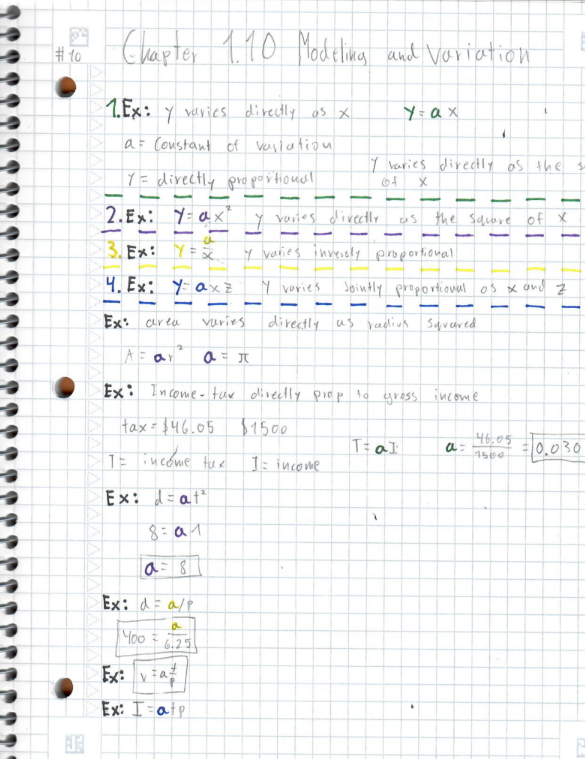 #10 Chapter 1.10 Modeling and Variation
1.Ex: y varies directly as x y=ax
a= Constant of variation
y varies directly as the s
Y= directly proportional of x
2. Ex: y=ax² y varies directly as the square of x
3. Ex: y=a/x y varies inversly proportional
4. Ex: y=axz y varies Jointly proportional as x and z
Ex: area varies directly as radius squared
A=ar² a=π
Ex: Income-tax directly prop to gross income
tax=$46.05 $1500
T=aI a=46.05/1500=0.030
T= income tax I=income
Ex: d=at²
8=a1
a=8
Ex: d=a/p
400=a/6.25
Ex: v=a t/p
Ex: I=atp